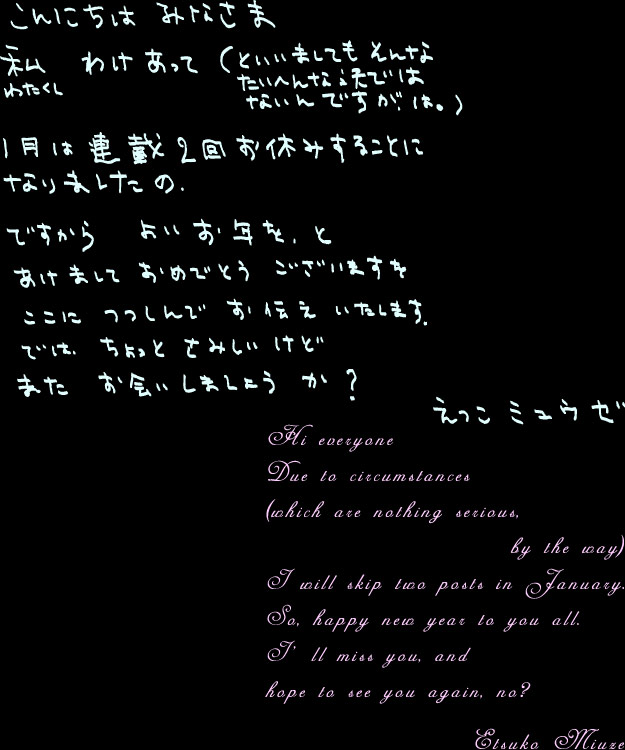 こんにちは みなさま
私 わけあって (といいましても そんな
わたくし
たいへんな訳では
ないんですが、は。)
1月は連載2回お休みすることに
なりましたの.
ですから よい お年を、と
あけまして おめでとう ございますを
ここに つつしんで お伝え いたします.
では、ちょっと さみしい けど
また お会いしましょう か?
えつこ ミュウゼ
Hi everyone
Due to circumstances
(which are nothing serious,
by the way)
I will skip two posts in January.
So, happy new year to you all.
I'll miss you, and
hope to see you again, no?
Etsuko Miuze